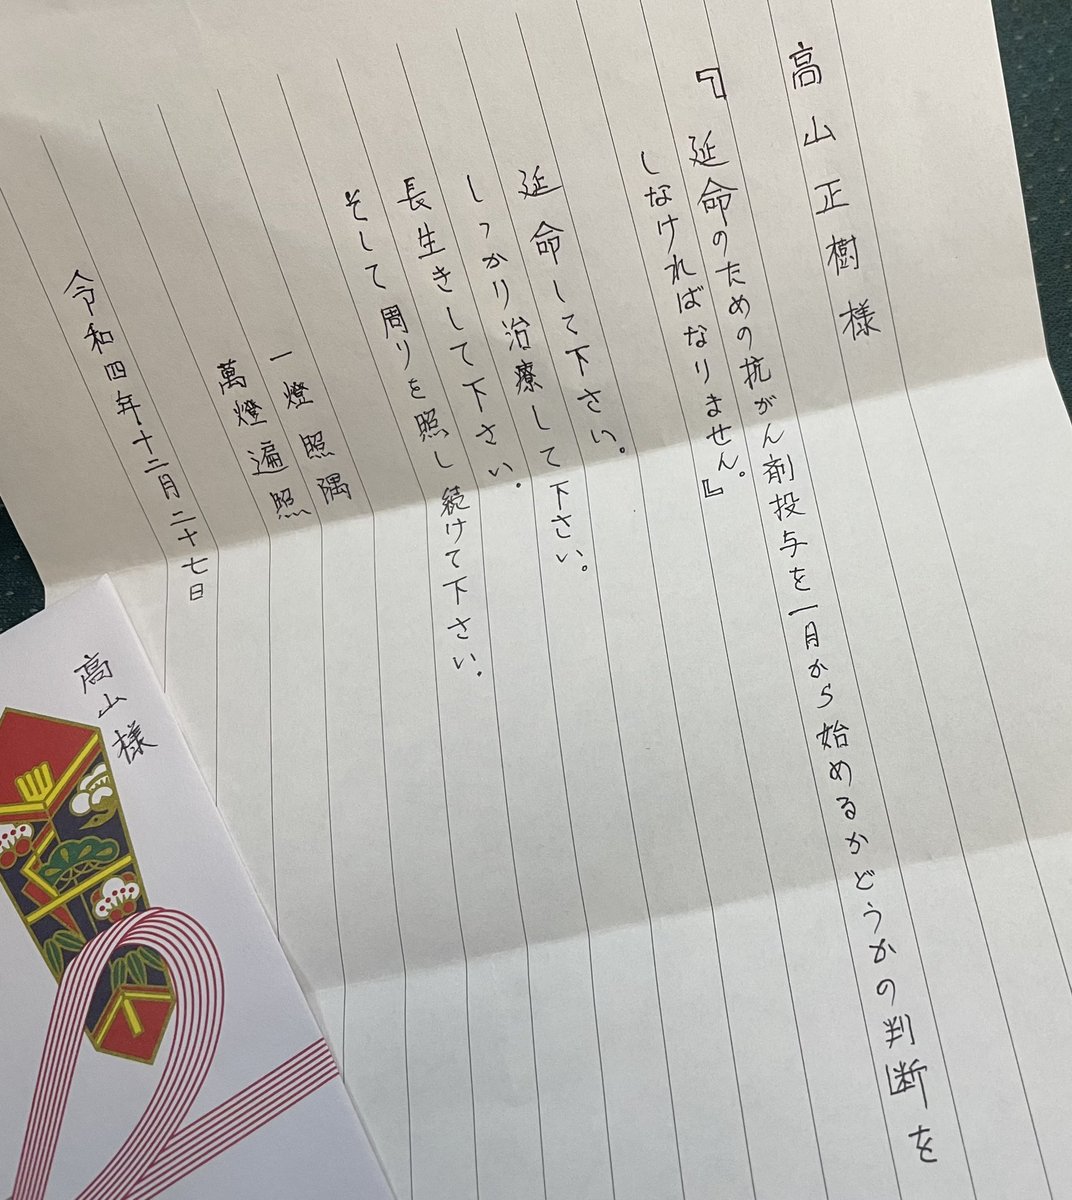 高山正樹様
『延命のための抗がん剤投与を一月から始めるかどうかの判断を
しなければなりません。』
延命して下さい。
しっかり治療して下さい。
長生きして下さい。
そして周りを照し続けて下さい。
一燈照隅
萬燈遍照
令和四年十二月二十七日
高山様